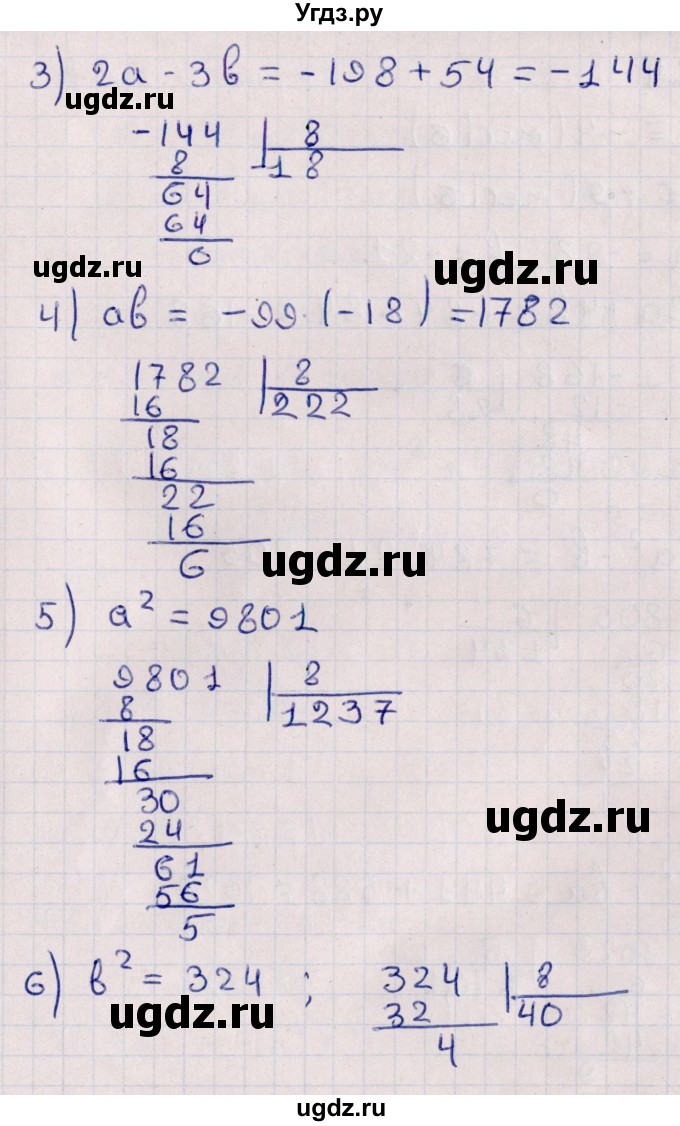 Угдз.ру
3) 2a - 3b = -198 + 54 = -144
ugdz.ru
-144 8
8 -18
64
64
0
ugdz.ru
ugdz.ru
4) ab = -99 · (-18) = 1782
1782 8
16 222
18
16
22
16
6
ugdz.ru
5) a² = 9801
9801 8
8 1237
18
16
30
24
ugdz.ru
61
56
5
6) b² = 324 ; 324 8
32 40
4
ugdz.ru
ugdz.ru